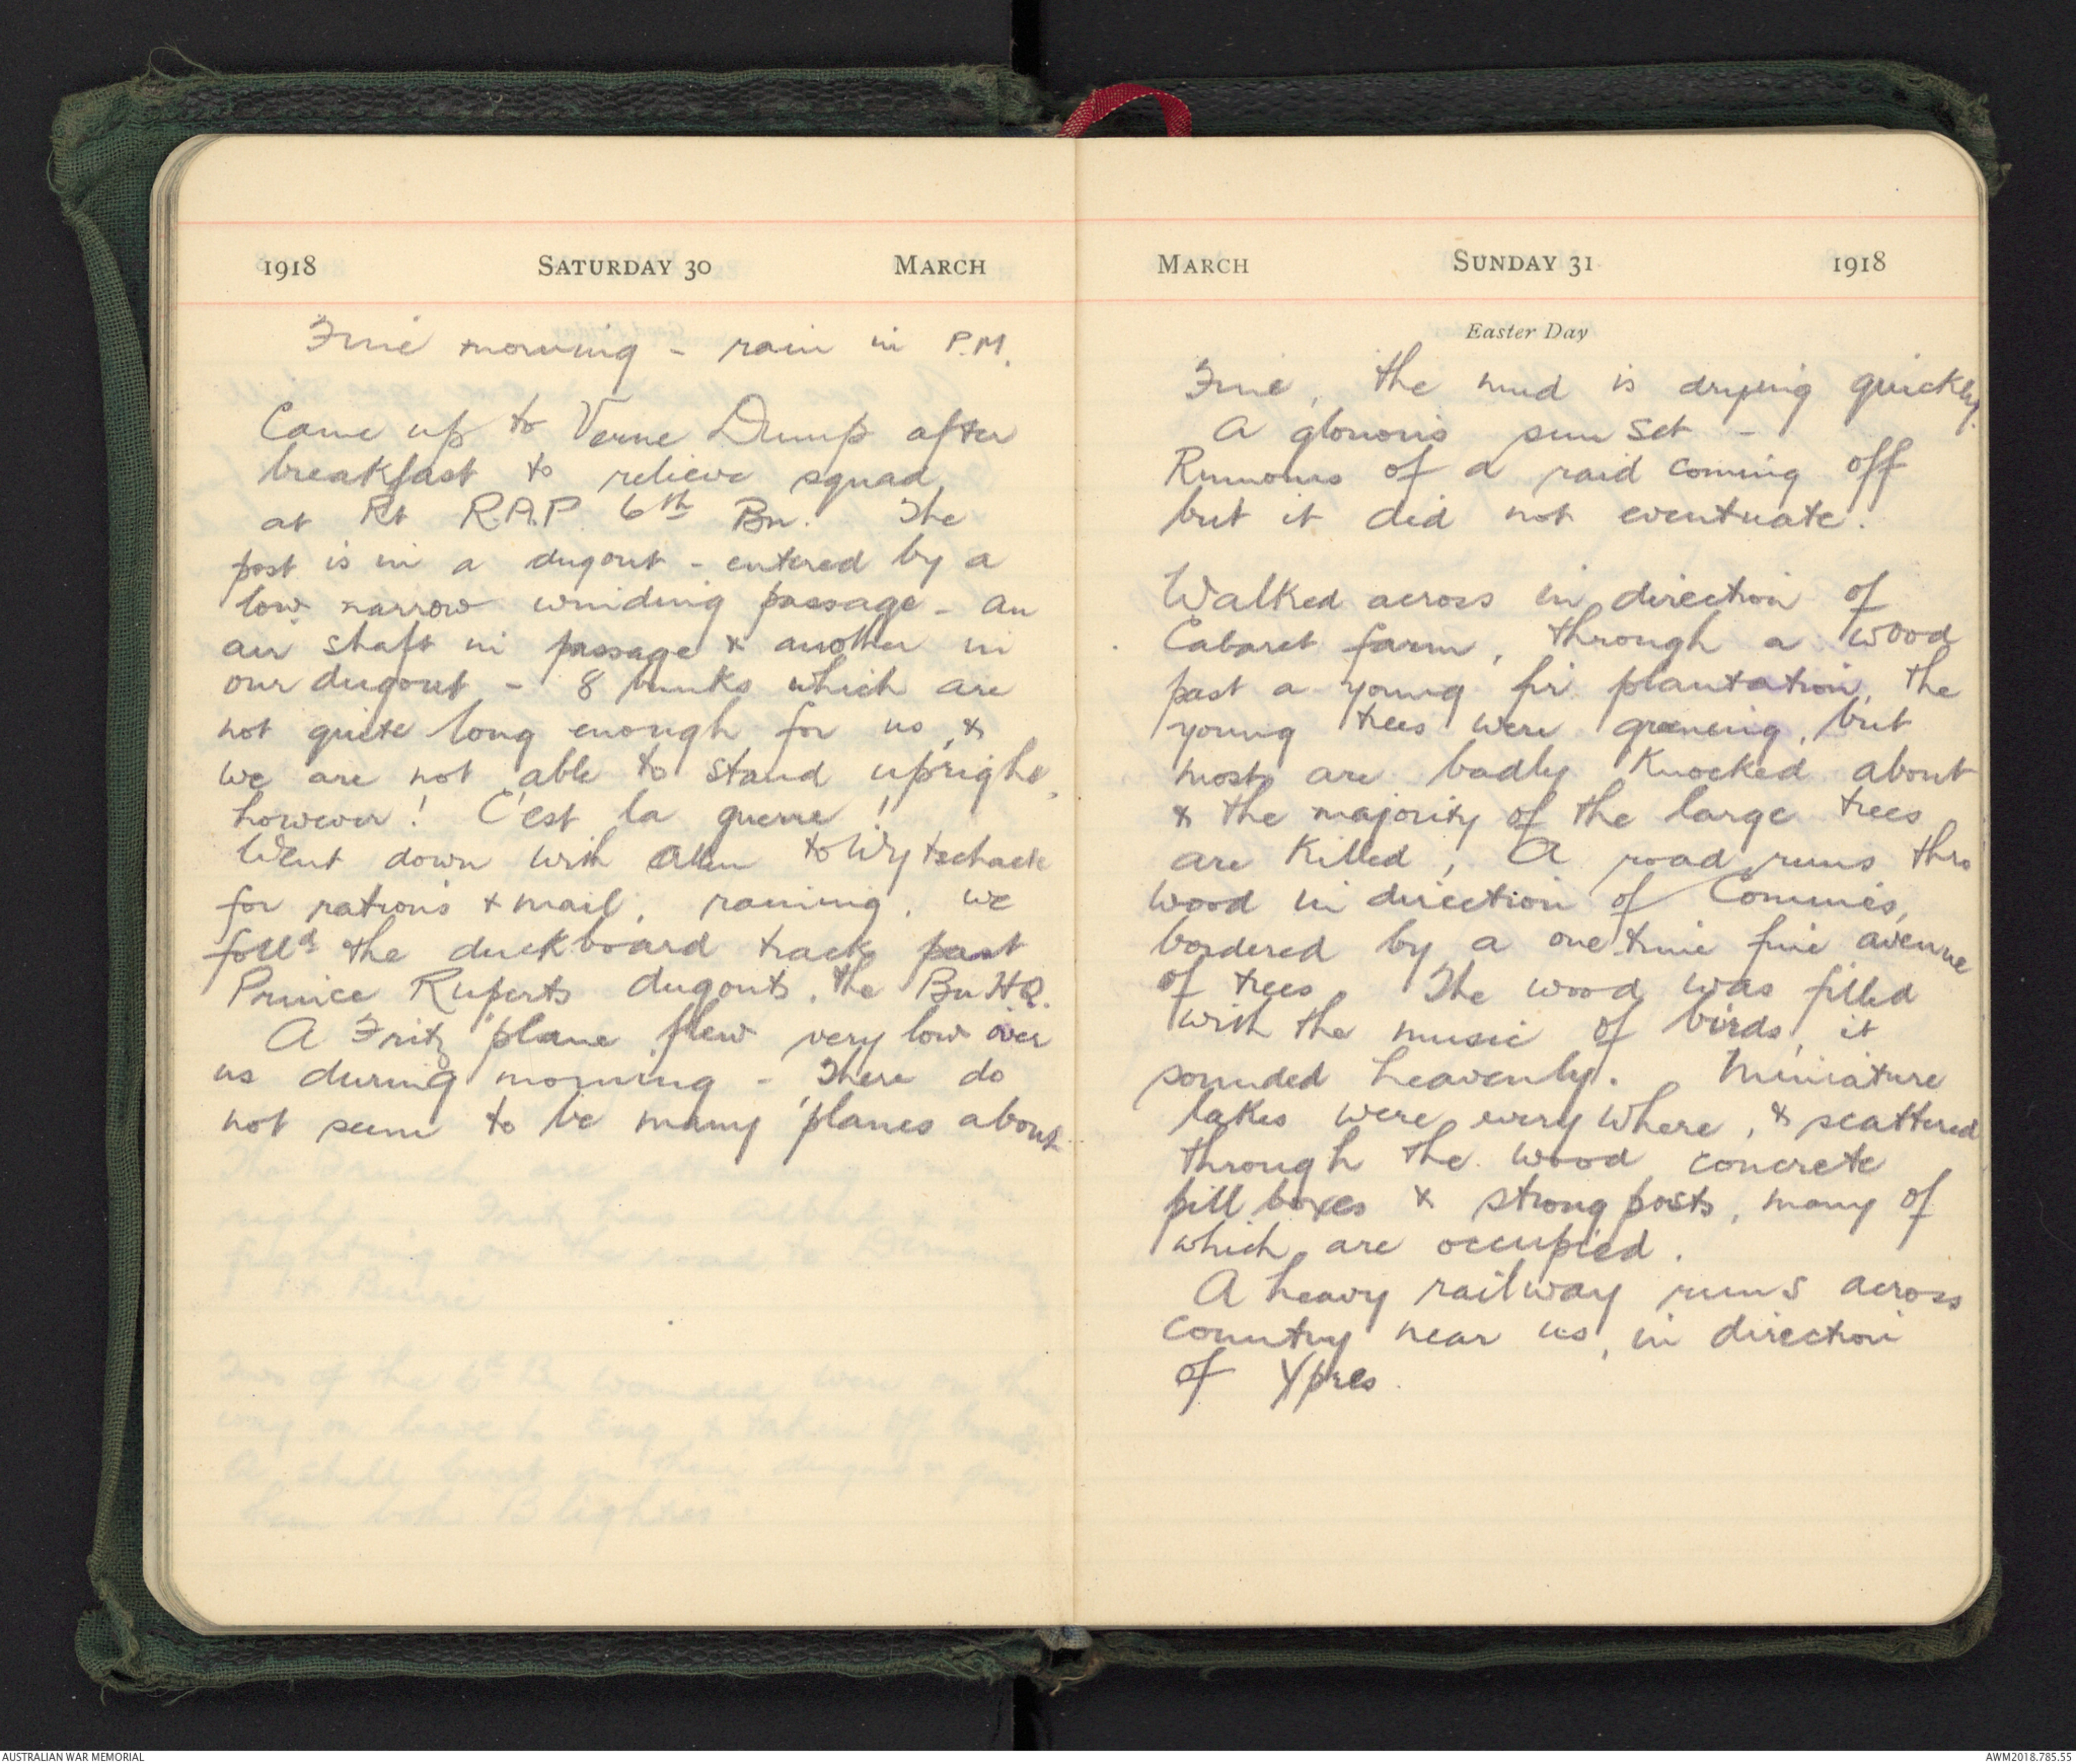 1918 SATURDAY 30 MARCH
Fine morning - rain in P.M.
Came up to Verne Dump after
breakfast to relieve squad
at Rt R.A.P. 6th Bn. The
post is in a dugout - entered by a
low narrow winding passage - an
air shaft in passage & another in
our dugout - 8 bunks which are
not quite long enough for us, &
we are not able to stand upright,
however! C'est la guerre!
Went down with Alan to Wytschaete
for rations & mail, raining, we
folld the duckboard track past
Prince Ruperts dugouts, the Bn HQ.
A Fritz 'plane flew very low over
us during morning - There do
not seem to be many 'planes about.
MARCH SUNDAY 31 1918
Easter Day
Fine, the mud is drying quickly.
A glorious sun set -
Rumours of a raid coming off
but it did not eventuate.
Walked across in direction of
Cabaret farm, through a wood
past a young fir plantation, the
young trees were greening, but
most are badly knocked about
& the majority of the large trees
are killed, A road runs thro
wood in direction of Commines,
bordered by a one time fine avenue
of trees. The wood was filled
with the music of birds, it
sounded heavenly. Miniature
lakes were every where, & scattered
through the wood concrete
pill boxes & strong posts, many of
which are occupied.
A heavy railway runs across
country near us, in direction
of Ypres.
AUSTRALIAN WAR MEMORIAL AWM2018.785.55